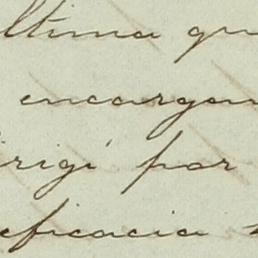 ltima qu
encargan
irigí por
eficacia